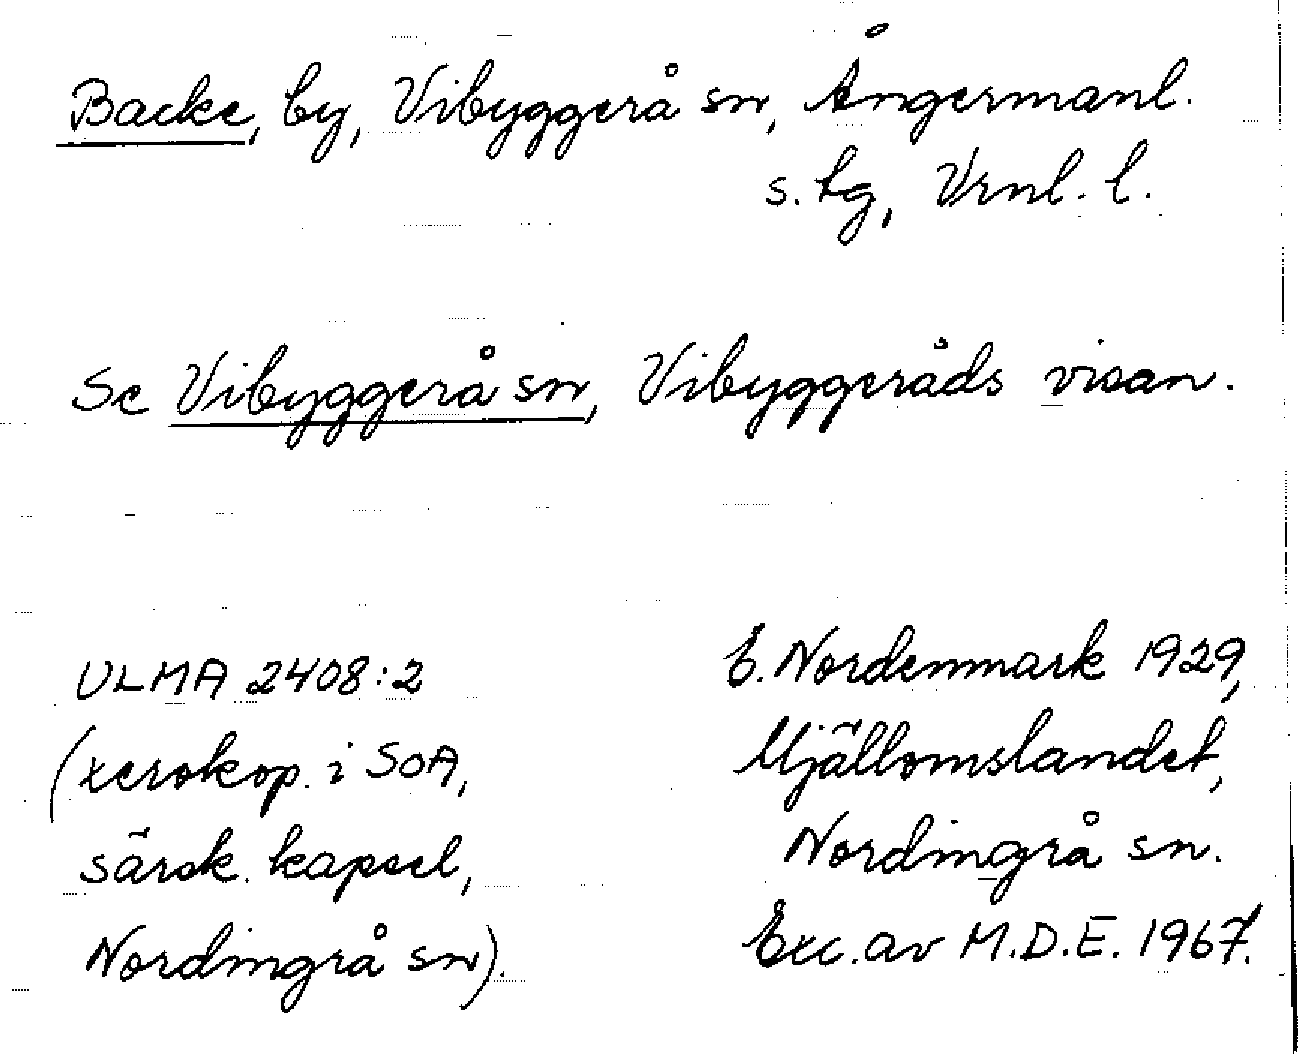 Backe, by, Vibyggerå sn, Ångermanl.
s. tg, Vrnl. l.
Se Vibyggerå sn, Vibyggeråds visan.
ULMA 2408:2
(xerokop. i SOA,
särsk. kapsel,
Nordingrå sn).
E. Nordenmark 1929,
Mjällomslandet,
Nordingrå sn.
Exc. av M.D.E. 1967.